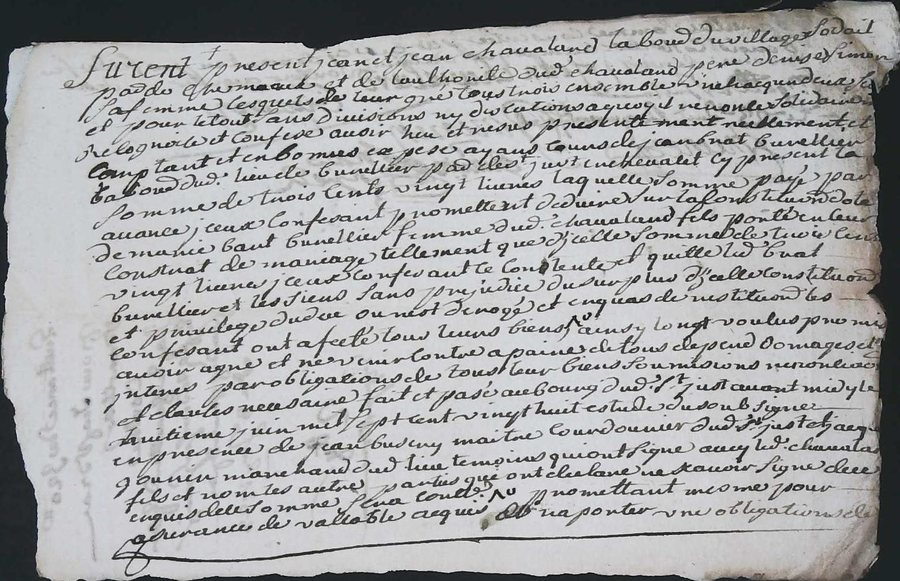 furent present jean et jean chavaland laboud du village sodait
pard de chemaux et de laulhonile dud. chavaland pere denise simon
sa femme lesquels de leur gré tous trois ensemble un chacun deux seul
et pour le tout sans divisions ny discutions a quoy il renonse solidaire
Relognoise et confese avoir heu et resus presentement reellement et
comptant et en bonnes espese ayans cours de jean brat burellier
laboud dud. lieu de burelier pad de st just en chevalet cy present la
somme de trois cents vingt livres laquelle somme payé par
avance jceux confesant promettent deduire sur la constituond dote
de marie baut burellier femme dud. chavaland fils porté en leur
contrat de mariage tellement que djcelle somme de trois cent
vingt livres jceux confesant le contente et quille led brat
burellier et les siens sans prejudice du surplus djcelle constituond
et privilege dudue ou nest derogé et en quas de restituond les
confesant ont afecté tous leurs biens ainsy lont voulus promis
avoir agreé et ne venir contre a paine de tous depend domages et
jnteres par obligations de tous leur biens soumisions renonciaons
et clauses necesaire fait et pasé au bourg dud. st just avant midy le
huitieme juin mil sept cent vingt huit estude du soub signe
en presence de jean busery maitre courdonnier dud st just et jacque
gounin marchand dud lieu temoins qui ont signe avec led. chavaland
fils et non les autre parties que ont declare ne scavoir signe de ce
enquis delle somme sera conll
promettant mesme pour
asurance de vallable acquis raporter une obligations de